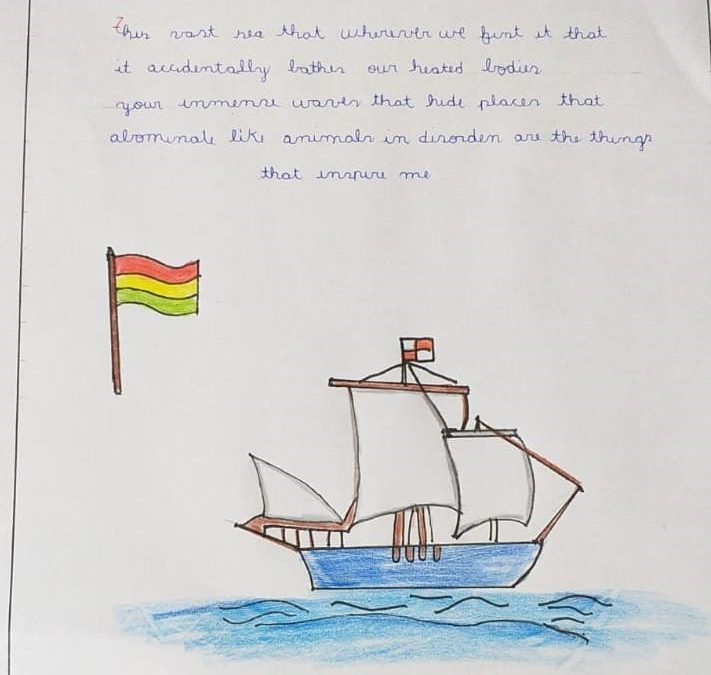 This vast sea that wherever we fint it that
it accidentally bathes our heated bodies
your inmense waves that hide places that
abominate like animals in disorden are the things
that inspire me